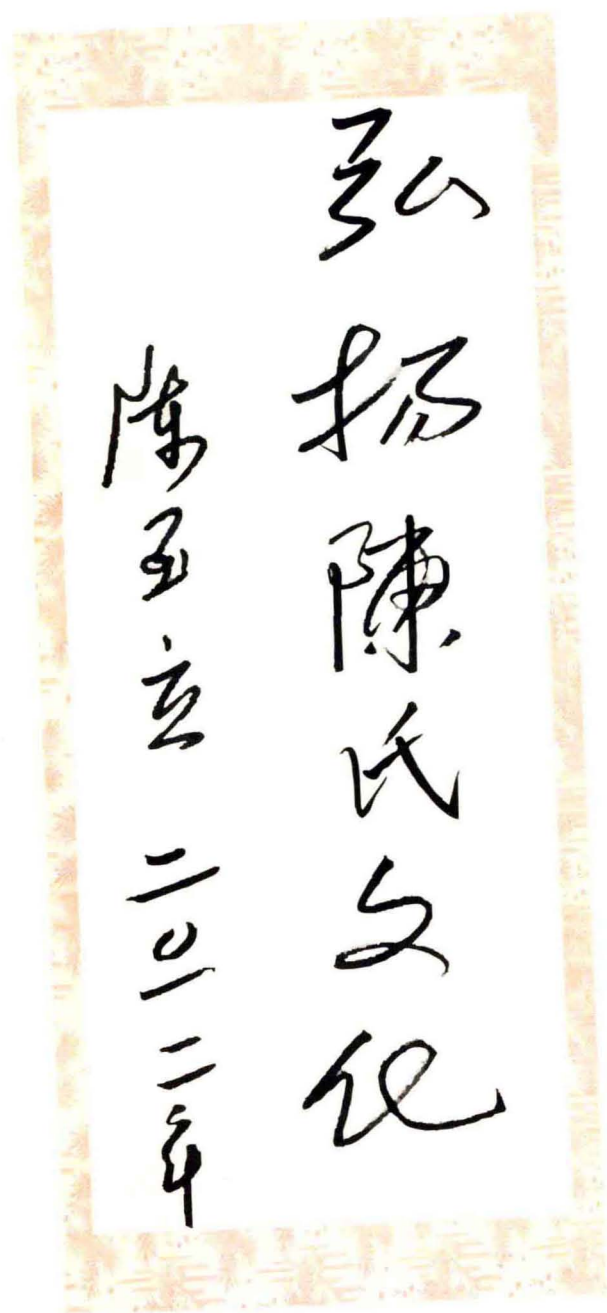 弘扬陳氏文化
陈玉立 二〇一二年